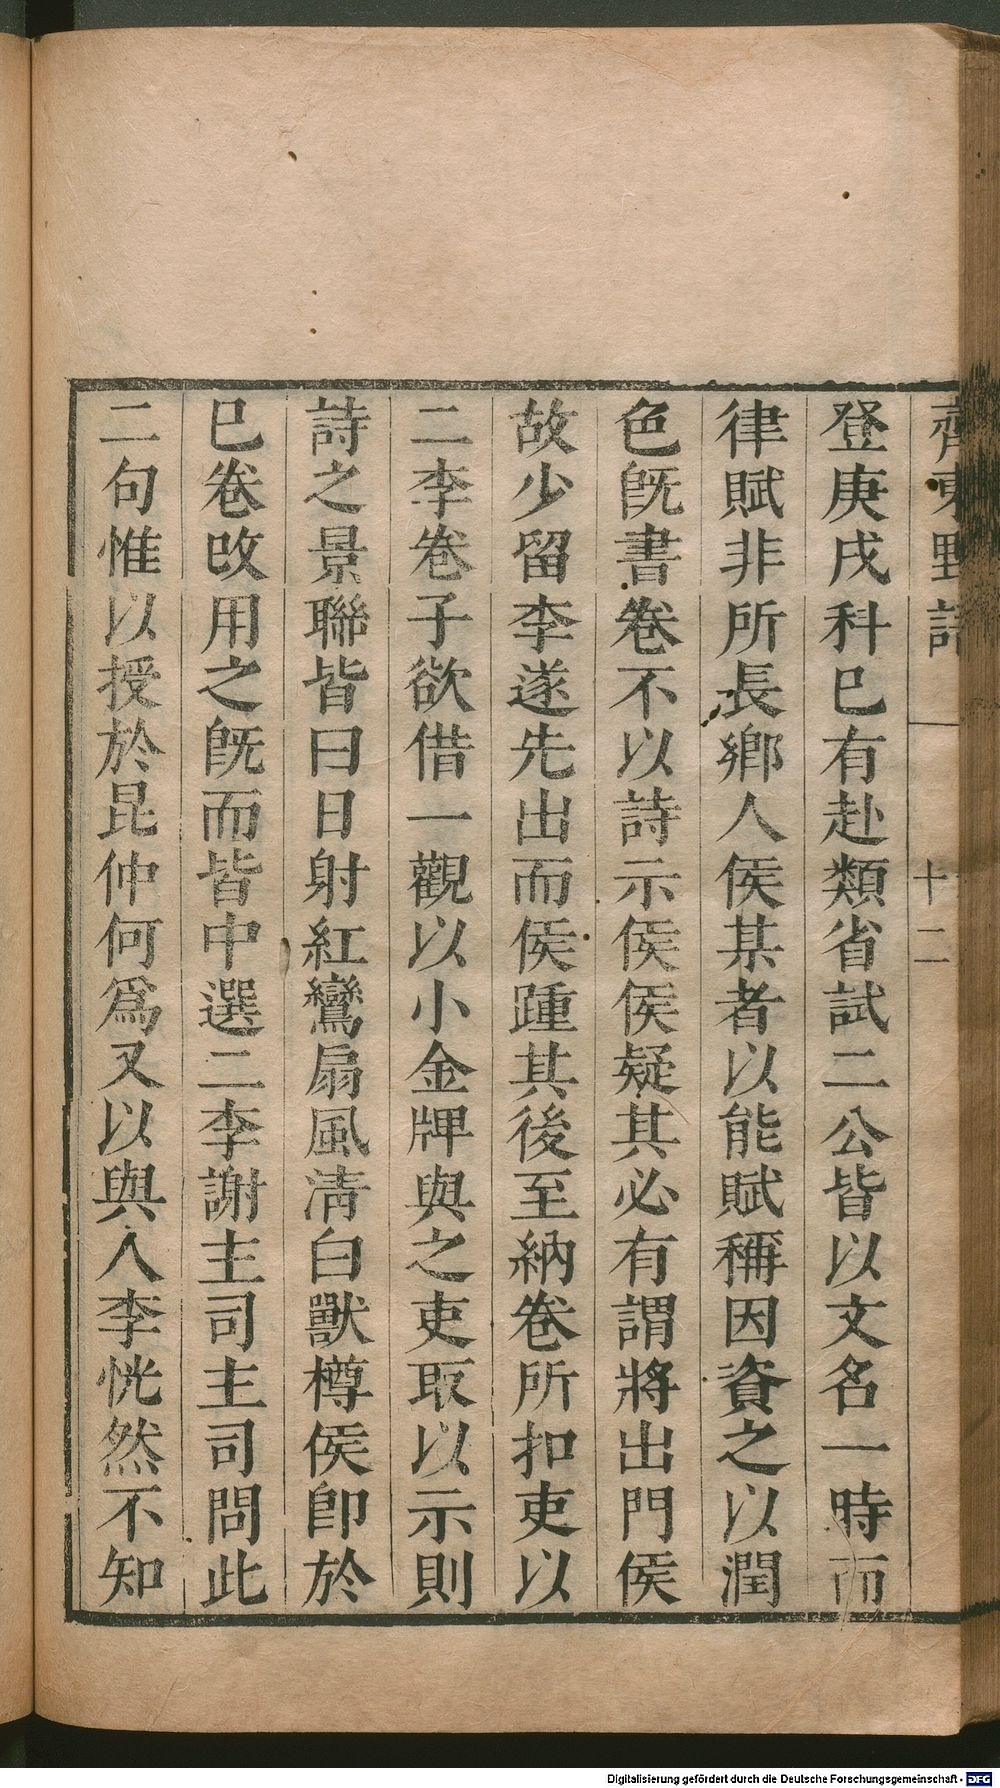 齊東野語 十二
登庚戌科巳有赴類省試二公皆以文名一時而
律賦非所長鄉人侯某者以能賦稱因資之以潤
色旣書卷不以詩示侯侯疑其必有謂將出門侯
故少留李遂先出而侯踵其後至納卷所扣吏以
二李卷子欲借一觀以小金牌與之吏取以示則
詩之景聯皆曰日射紅鸞扇風淸白獸樽侯卽於
巳卷改用之旣而皆中選二李謝主司主司問此
二句惟以授於昆仲何爲又以與人李恍然不知
Digitalisierung gefördert durch die Deutsche Forschungsgemeinschaft - DFG